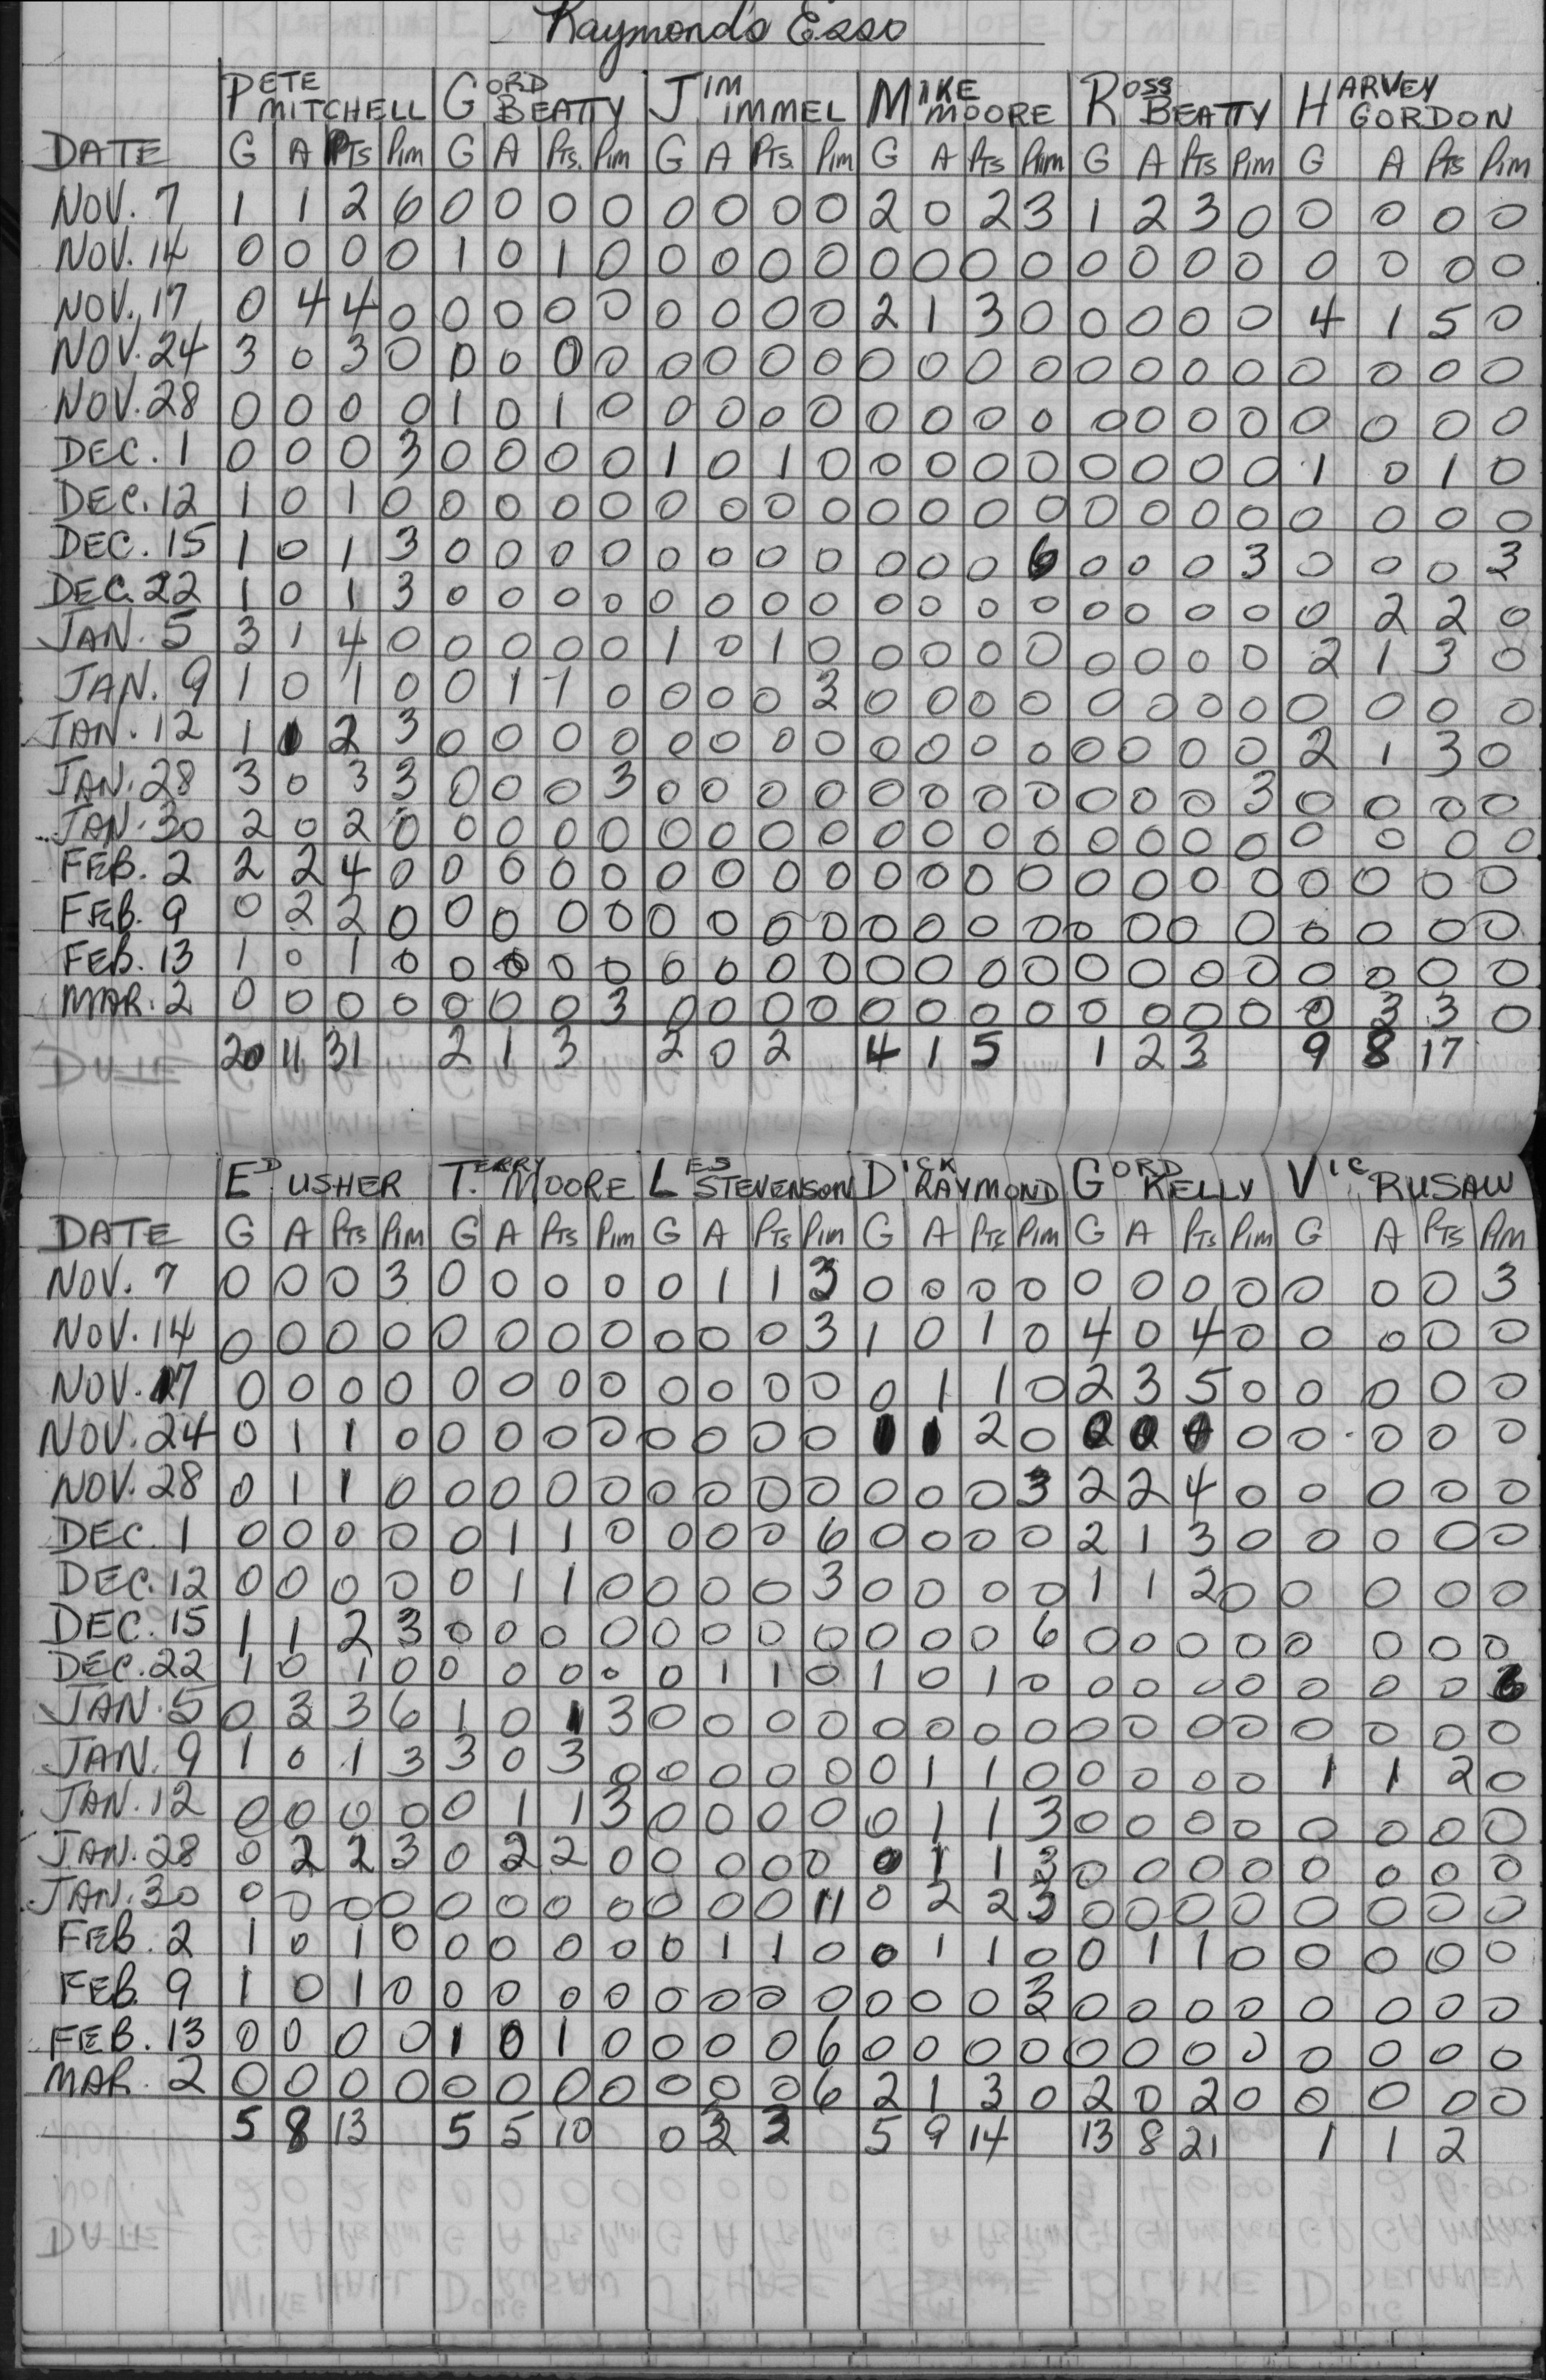 Raymond's Esso
PETE MITCHELL GORD BEATTY JIM IMMEL MIKE MOORE ROSS BEATTY HARVEY GORDON
DATE G A PTS PIM G A PTS. PIM G A PTS. PIM G A PTS PIM G A PTS PIM G A PTS PIM
NOV. 7 1 1 2 6 0 0 0 0 0 0 0 0 2 0 2 3 1 2 3 0 0 0 0 0
NOV. 14 0 0 0 0 1 0 1 0 0 0 0 0 0 0 0 0 0 0 0 0 0 0 0 0
NOV. 17 0 4 4 0 0 0 0 0 0 0 0 0 2 1 3 0 0 0 0 0 4 1 5 0
NOV. 24 3 0 3 0 0 0 0 0 0 0 0 0 0 0 0 0 0 0 0 0 0 0 0 0
NOV. 28 0 0 0 0 1 0 1 0 0 0 0 0 0 0 0 0 0 0 0 0 0 0 0 0
DEC. 1 0 0 0 3 0 0 0 0 1 0 1 0 0 0 0 0 0 0 0 0 1 0 1 0
DEC. 12 1 0 1 0 0 0 0 0 0 0 0 0 0 0 0 0 0 0 0 0 0 0 0 0
DEC. 15 1 0 1 3 0 0 0 0 0 0 0 0 0 0 0 6 0 0 0 3 0 0 0 3
DEC. 22 1 0 1 3 0 0 0 0 0 0 0 0 0 0 0 0 0 0 0 0 0 2 2 0
JAN. 5 3 1 4 0 0 0 0 0 1 0 1 0 0 0 0 0 0 0 0 0 2 1 3 0
JAN. 9 1 0 1 0 0 1 1 0 0 0 0 3 0 0 0 0 0 0 0 0 0 0 0 0
JAN. 12 1 1 2 3 0 0 0 0 0 0 0 0 0 0 0 0 0 0 0 0 2 1 3 0
JAN. 28 3 0 3 3 0 0 0 3 0 0 0 0 0 0 0 0 0 0 0 3 0 0 0 0
JAN. 30 2 0 2 0 0 0 0 0 0 0 0 0 0 0 0 0 0 0 0 0 0 0 0 0
FEB. 2 2 2 4 0 0 0 0 0 0 0 0 0 0 0 0 0 0 0 0 0 0 0 0 0
FEB. 9 0 2 2 0 0 0 0 0 0 0 0 0 0 0 0 0 0 0 0 0 0 0 0 0
FEB. 13 1 0 1 0 0 0 0 0 0 0 0 0 0 0 0 0 0 0 0 0 0 0 0 0
MAR. 2 0 0 0 0 0 0 0 3 0 0 0 0 0 0 0 0 0 0 0 0 0 3 3 0
20 11 31 2 1 3 2 0 2 4 1 5 1 2 3 9 8 17
ED USHER TERRY MOORE LES STEVENSON DICK RAYMOND GORD KELLY VIC RUSAW
DATE G A PTS PIM G A PTS PIM G A PTS PIM G A PTS PIM G A PTS PIM G A PTS PIM
NOV. 7 0 0 0 3 0 0 0 0 0 1 1 3 0 0 0 0 0 0 0 0 0 0 0 3
NOV. 14 0 0 0 0 0 0 0 0 0 0 0 3 1 0 1 0 4 0 4 0 0 0 0 0
NOV. 17 0 0 0 0 0 0 0 0 0 0 0 0 0 1 1 0 2 3 5 0 0 0 0 0
NOV. 24 0 1 1 0 0 0 0 0 0 0 0 0 1 1 2 0 0 0 0 0 0 0 0 0
NOV. 28 0 1 1 0 0 0 0 0 0 0 0 0 0 0 0 3 2 2 4 0 0 0 0 0
DEC. 1 0 0 0 0 0 1 1 0 0 0 0 6 0 0 0 0 2 1 3 0 0 0 0 0
DEC. 12 0 0 0 0 0 1 1 0 0 0 0 3 0 0 0 0 1 1 2 0 0 0 0 0
DEC. 15 1 1 2 3 0 0 0 0 0 0 0 0 0 0 0 6 0 0 0 0 0 0 0 0
DEC. 22 1 0 1 0 0 0 0 0 0 1 1 0 1 0 1 0 0 0 0 0 0 0 0
JAN. 5 0 3 3 6 1 0 1 3 0 0 0 0 0 0 0 0 0 0 0 0 0 0 0 0
JAN. 9 1 0 1 3 3 0 3 0 0 0 0 0 0 1 1 0 0 0 0 0 1 1 2 0
JAN. 12 0 0 0 0 0 1 1 3 0 0 0 0 0 1 1 3 0 0 0 0 0 0 0 0
JAN. 28 0 2 2 3 0 2 2 0 0 0 0 0 0 1 1 3 0 0 0 0 0 0 0 0
JAN. 30 0 0 0 0 0 0 0 0 0 0 0 11 0 2 2 3 0 0 0 0 0 0 0 0
FEB. 2 1 0 1 0 0 0 0 0 0 1 1 0 0 1 1 0 0 1 1 0 0 0 0 0
FEB. 9 1 0 1 0 0 0 0 0 0 0 0 0 0 0 0 3 0 0 0 0 0 0 0 0
FEB. 13 0 0 0 0 1 0 1 0 0 0 0 6 0 0 0 0 0 0 0 0 0 0 0 0
MAR. 2 0 0 0 0 0 0 0 0 0 0 0 6 2 1 3 0 2 0 2 0 0 0 0 0
5 8 13 5 5 10 0 3 3 5 9 14 13 8 21 1 1 2